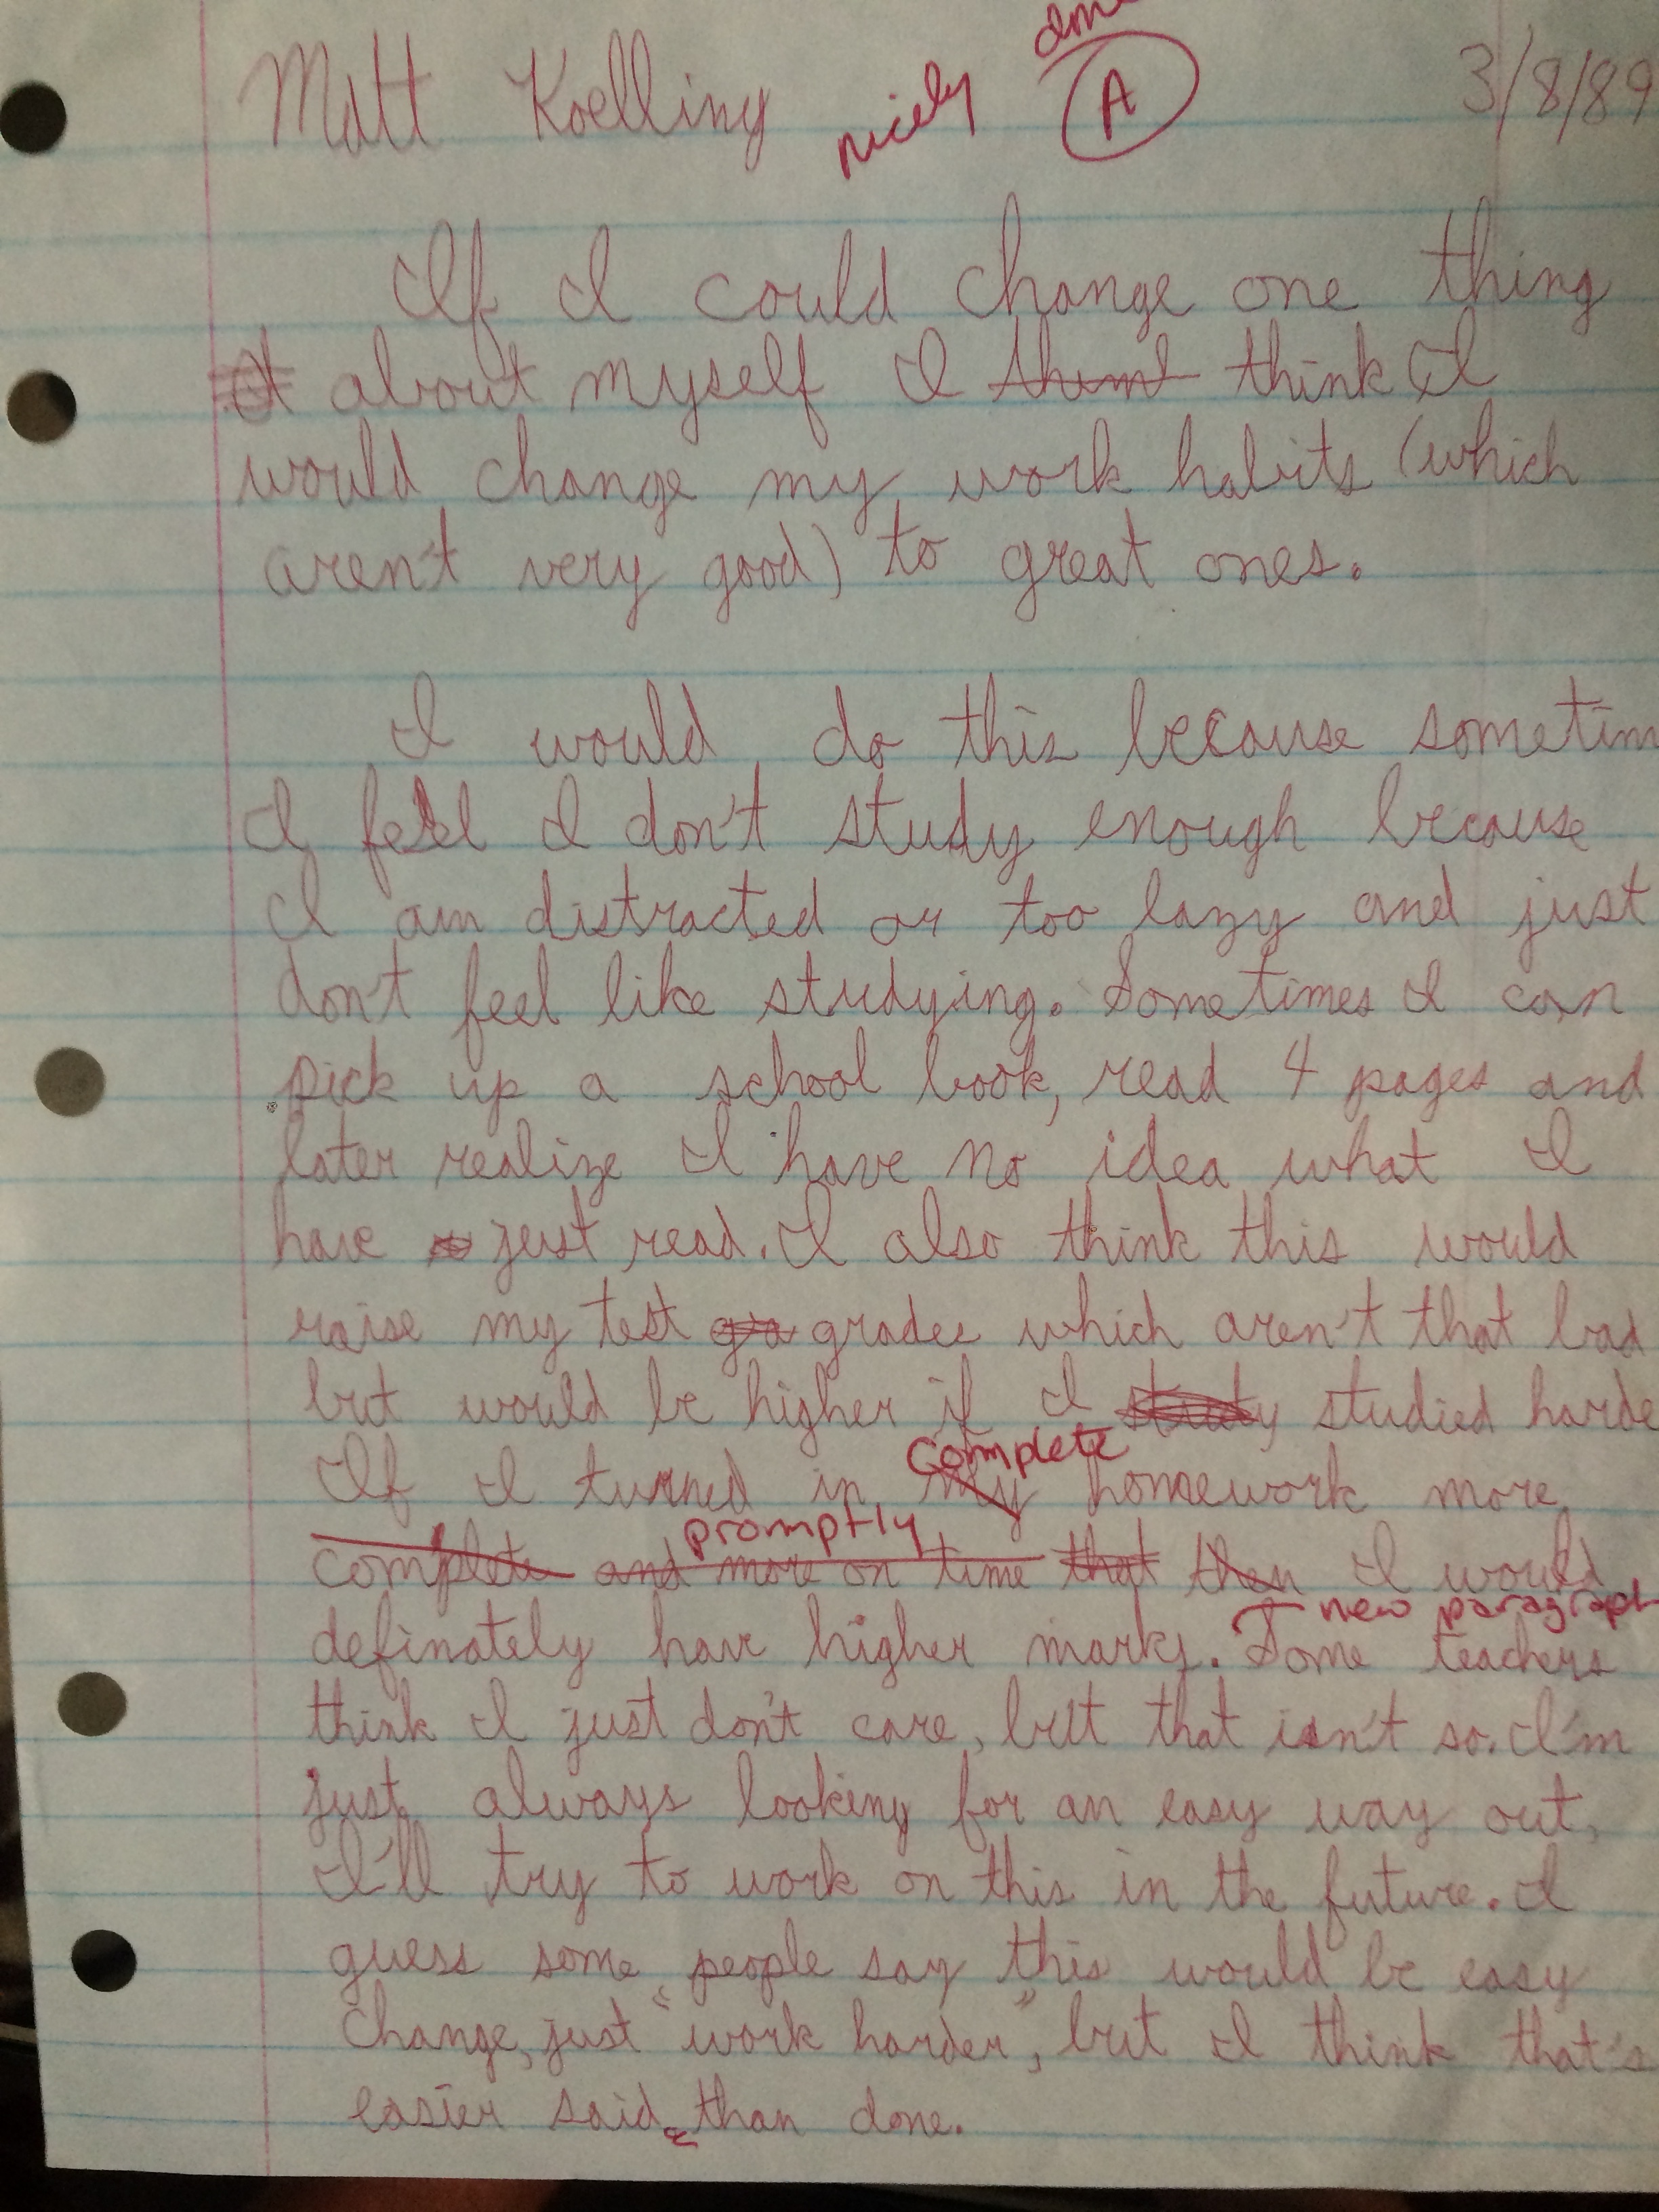 Matt Koelling nicely done A 3/8/89
If I could change one thing
about myself I think I
would change my work habits (which
aren't very good) to great ones.
I would do this because sometim
I feel I don't study enough because
I am distracted or too lazy and just
don't feel like studying. Sometimes I can
pick up a school book, read 4 pages and
later realize I have no idea what I
have just read. I also think this would
raise my test grades which aren't that bad
but would be higher if I study studied harde
complete
If I turned in my homework more
promptly
complete and more on time that then I would
new paragraph
definately have higher marks. Some teachers
think I just don't care, but that isn't so. I'm
just always looking for an easy way out,
I'll try to work on this in the future. I
guess some people say this would be easy
change, just "work harder", but I think that's
easier said than done.